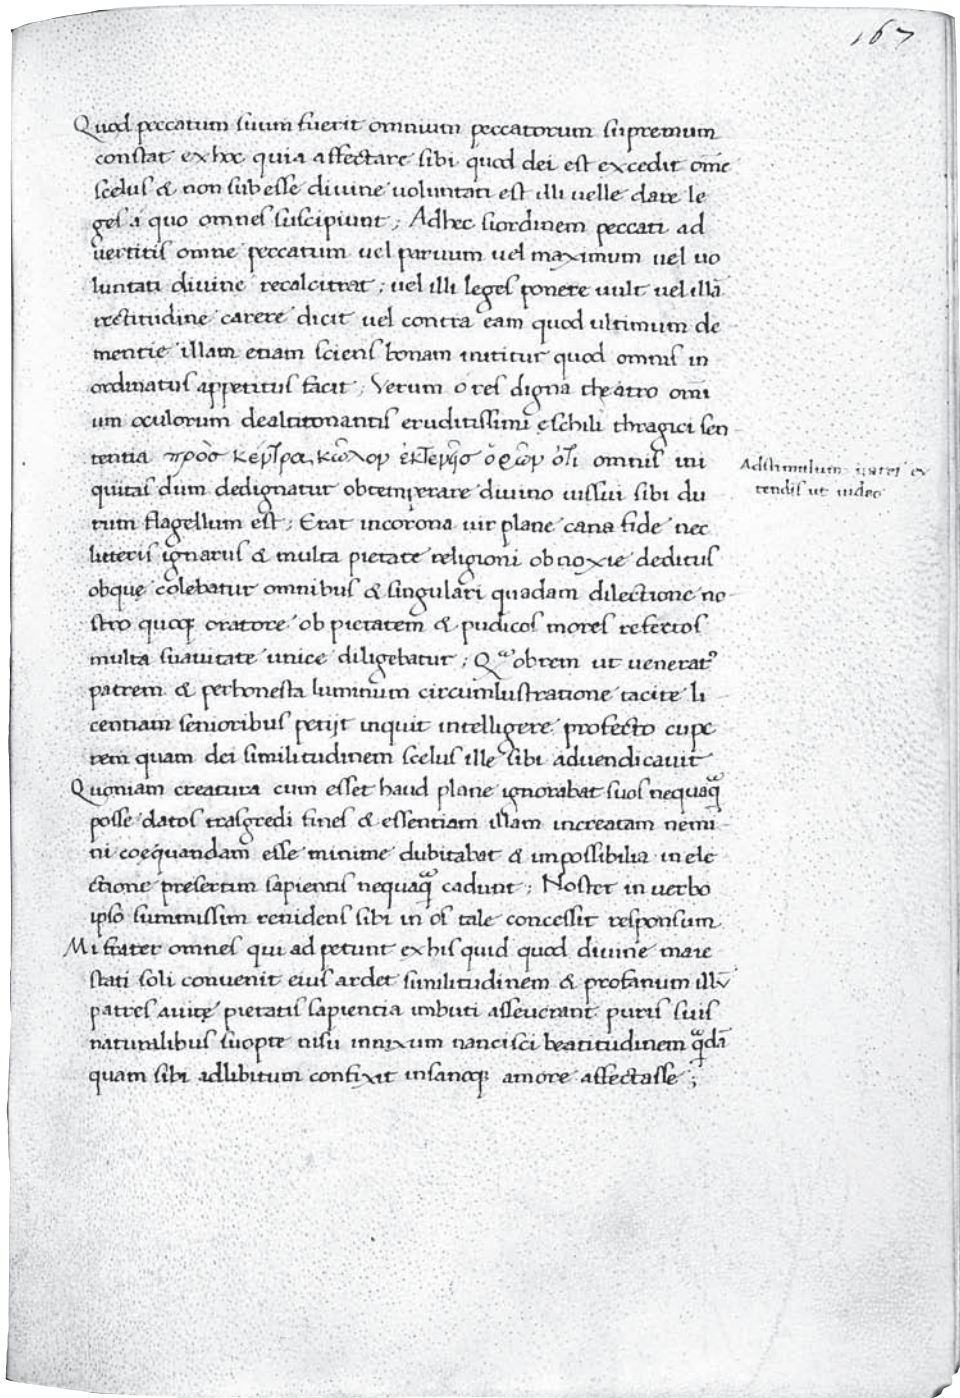 167
Quod peccatum suum fuerit omnium peccatorum supremum
constat ex hoc quia affectare sibi quod dei est excedit omē
scelus & non subesse divine voluntati est illi velle dare le
ges a quo omnes suscipiunt ; Adhec si ordinem peccati ad
vertitis omne peccatum vel parvum vel maximum vel vo
luntati divine recalcitrat ; vel illi leges ponere vult vel illā
rectitudine carere dicit vel contra eam quod ultimum de
mentie illam etiam sciens bonam nititur quod omnis in
ordinatus appetitus facit ; Verum o res digna theatro omi
um oculorum de altitonantis eruditissimi eschili thragici sen
tentia πρὸσ κέντρα κῶλον ἐκτενῇσ ὁρῶν ὅτι omnis ini
Ad stimulum extendis ut video
quitas dum dedignatur obtemperare divino iussui sibi du
rum flagellum est ; Erat in corona vir plane cana fide nec
litteris ignarus & multa pietate religioni obnoxie deditus
obque colebatur omnibus & singulari quadam dilectione no
stro quoqꝫ oratore ob pietatem & pudicos mores refertos
multa suavitate unice diligebatur ; Qᵃobrem ut venerat᾽
patrem & perhonesta luminum circumlustratione tacite li
centiam senioribus petijt inquit intelligere profecto cupe
rem quam dei similitudinem scelus ille sibi advendicavit
Quoniam creatura cum esset haud plane ignorabat suos nequaq̄
posse datos trasgredi fines & essentiam illam increatam nemi
ni coequandam esse minime dubitabat & impossibilia in ele
ctione presertim sapientis nequaq̄ cadunt ; Noster in verbo
ipso summissim renidens sibi in os tale concessit responsum
Mi frater omnes qui adpetunt ex his quid quod divine maie
stati soli convenit eius ardet similitudinem & profanum illū
patres avitę pietatis sapientia imbuti asseverant puris suis
naturalibus suopte nisu innixum nancisci beatitudinem q̄dā
quam sibi adlibitum confixit insanoqꝫ amore affectasse ;